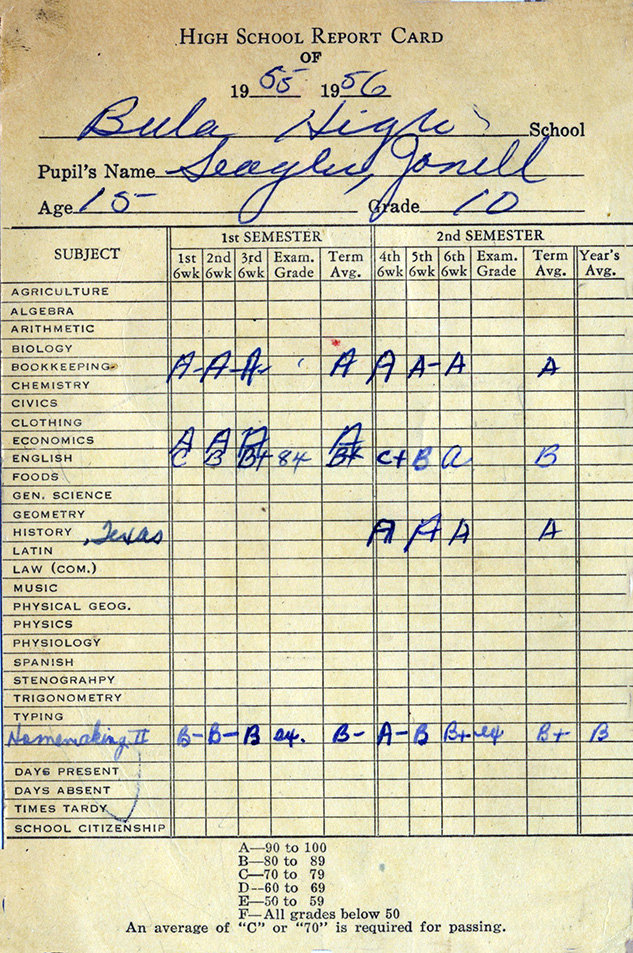 HIGH SCHOOL REPORT CARD
OF
19 55 19 56
Bula High School
Pupil's Name Seagler, Jonell
Age 15 Grade 10
SUBJECT 1st SEMESTER 2nd SEMESTER
1st 6wk 2nd 6wk 3rd 6wk Exam. Grade Term Avg. 4th 6wk 5th 6wk 6th 6wk Exam. Grade Term Avg. Year's Avg.
AGRICULTURE
ALGEBRA
ARITHMETIC
BIOLOGY
BOOKKEEPING A- A- A- A A A- A A
CHEMISTRY
CIVICS
CLOTHING
ECONOMICS A A A A
ENGLISH C B B+ 84 B+ C+ B a B
FOODS
GEN. SCIENCE
GEOMETRY
HISTORY , Texas A A A A
LATIN
LAW (COM.)
MUSIC
PHYSICAL GEOG.
PHYSICS
PHYSIOLOGY
SPANISH
STENOGRAHPY
TRIGONOMETRY
TYPING
Homemaking II B- B- B ex. B- A- B B+ ex B+ B
DAYS PRESENT
DAYS ABSENT
TIMES TARDY
SCHOOL CITIZENSHIP
A—90 to 100
B—80 to 89
C—70 to 79
D--60 to 69
E—50 to 59
F—All grades below 50
An average of "C" or "70" is required for passing.